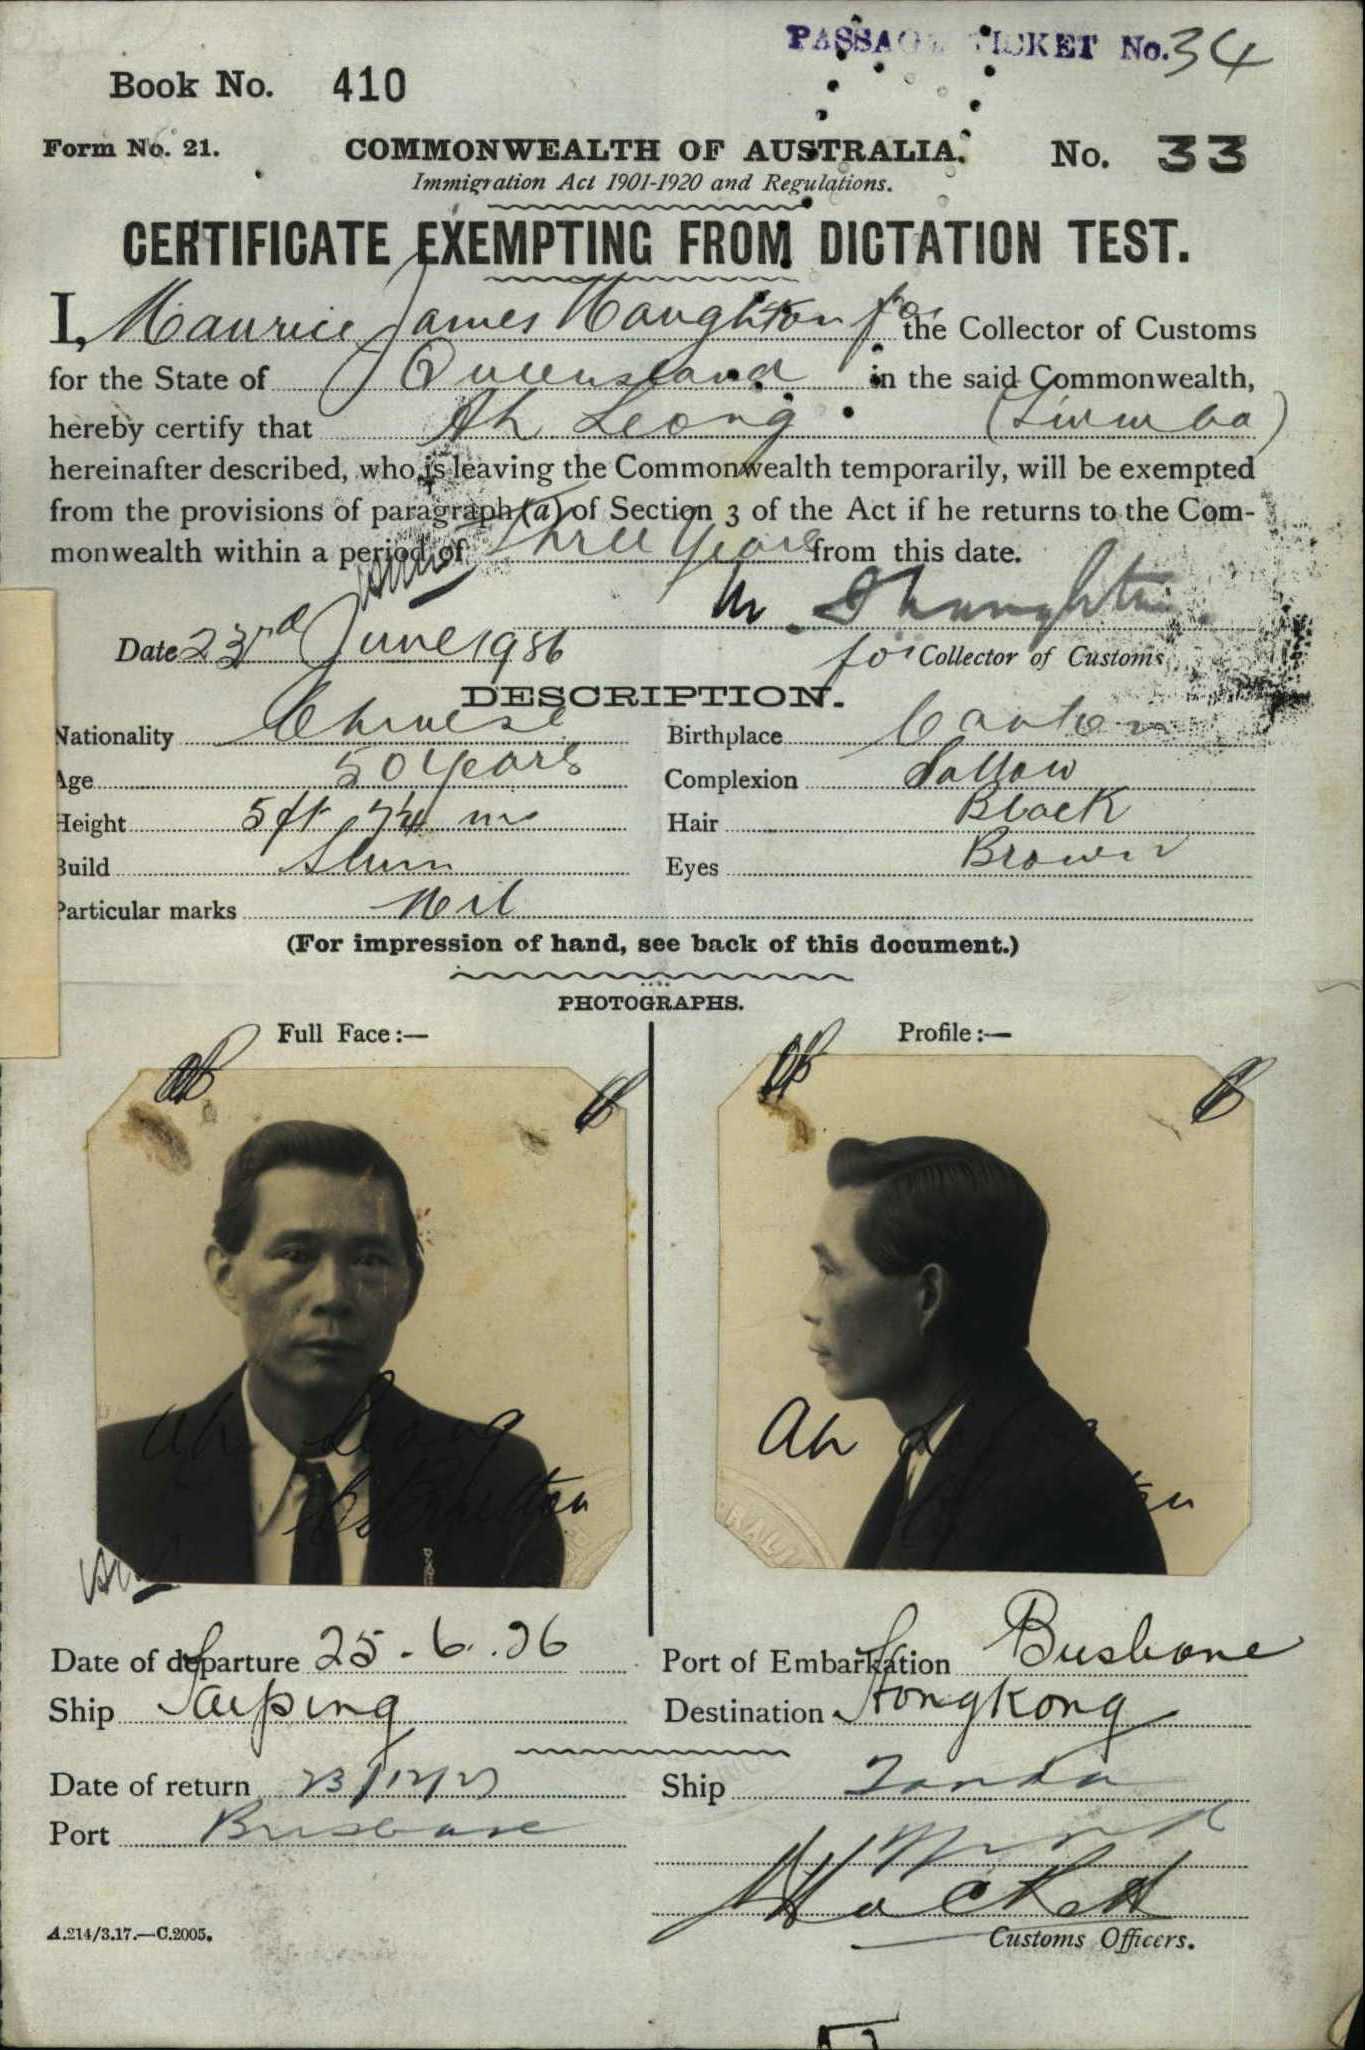 PASSAGE TICKET No. 34
Book No. 410
Form No. 21. COMMONWEALTH OF AUSTRALIA. No. 33
Immigration Act 1901-1920 and Regulations.
CERTIFICATE EXEMPTING FROM DICTATION TEST.
I, Maurice James Naughton for the Collector of Customs
for the State of Queensland in the said Commonwealth,
hereby certify that Ah Leong
hereinafter described, who is leaving the Commonwealth temporarily, will be exempted
from the provisions of paragraph (a) of Section 3 of the Act if he returns to the Com-
monwealth within a period of Three Years from this date.
Date 23rd June 1926 for Collector of Customs
DESCRIPTION.
Nationality Chinese Birthplace Canton
Age 50 Years Complexion Sallow
Height 5ft Hair Black
Build Eyes Brown
Particular marks Nil
(For impression of hand, see back of this document.)
PHOTOGRAPHS.
Full Face:— Profile:—
Ah Leong Ah
Date of departure 25-6-26 Port of Embarkation Brisbane
Ship Taiping Destination Hongkong
Date of return 23/12/27 Ship Tanda
Port Brisbane
A.214/3.17.—C.2005. Customs Officers.